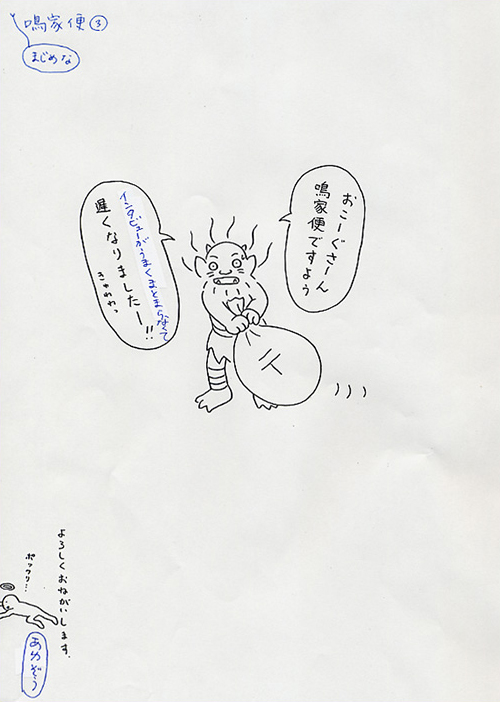 鳴家便③
まじめな
おこーぐさーん
鳴家便ですよう
インタビューがうまくまとまらなくて
遅くなりましたー!!
きゅわわ、
よろしくおねがいします。
ポックリ…
あめぞう